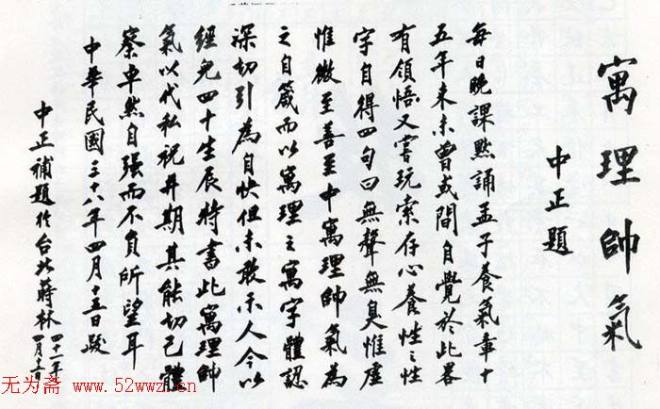 寓理帥氣
中正題
每日晚課默誦孟子養氣章十
五年來未曾或間自覺於此畧
有領悟又嘗玩索存心養性之性
字自得四句曰無聲無臭惟虛
惟微至善至中寓理帥氣為
之自箴而以寓理之寓字體認
深切引為自快但未敢示人今以
經兒四十生辰特書此寓理帥
氣以代私祝并期其能切己體
察卓然自强而不負所望耳
中華民國三十八年四月十五日跋
中正補題於台北蔣林四十一年
四月十三日
无为斋 www.52wwz.cn